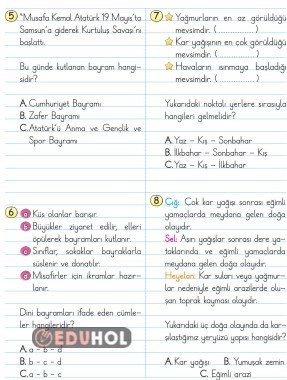 5 "Musafa Kemal Atatürk 19 Mayıs'ta
Samsun'a giderek Kurtuluş Savaşı'nı
başlattı.
Bu günde kutlanan bayram hangi-
sidir?
A. Cumhuriyet Bayramı
B. Zafer Bayramı
C. Atatürk'ü Anma ve Gençlik ve
Spor Bayramı
6 a Küs olanlar barışır.
b Büyükler ziyaret edilir, elleri
öpülerek bayramları kutlanır.
c Sınıflar, sokaklar bayraklarla
süslenir ve donatılır.
d Misafirler için ikramlar hazır-
lanır.
Dini bayramları ifade eden cümle-
ler hangileridir?
A. a - b - c
B. b - c - d
C. a - b - d
EDUHOL
7 Yağmurların en az görüldüğü
mevsimdir. ( )
Kar yağışının en çok görüldüğü
mevsimdir. ( )
Havaların ısınmaya başladığı
mevsimdir. ( )
Yukarıdaki noktalı yerlere sırasıyla
hangileri gelmelidir?
A. Yaz - Kış - Sonbahar
B. İlkbahar - Sonbahar - Kış
C. Yaz - Kış - İlkbahar
8 Çığ: Çok kar yağışı sonrası eğimli
yamaçlarda meydana gelen doğa
olayıdır.
Sel: Aşırı yağışlar sonrası dere ya-
taklarında ve eğimli yamaçlarda
meydana gelen doğa olayıdır.
Heyelan: Kar suları veya yağmur-
lar nedeniyle eğimli arazilerde olu-
şan toprak kayması olayıdır.
Yukarıdaki üç doğa olayında da kar-
şılaştığımız yeryüzü yapısı hangisidir?
A. Kar yağışı B. Yumuşak zemin
C. Eğimli arazi